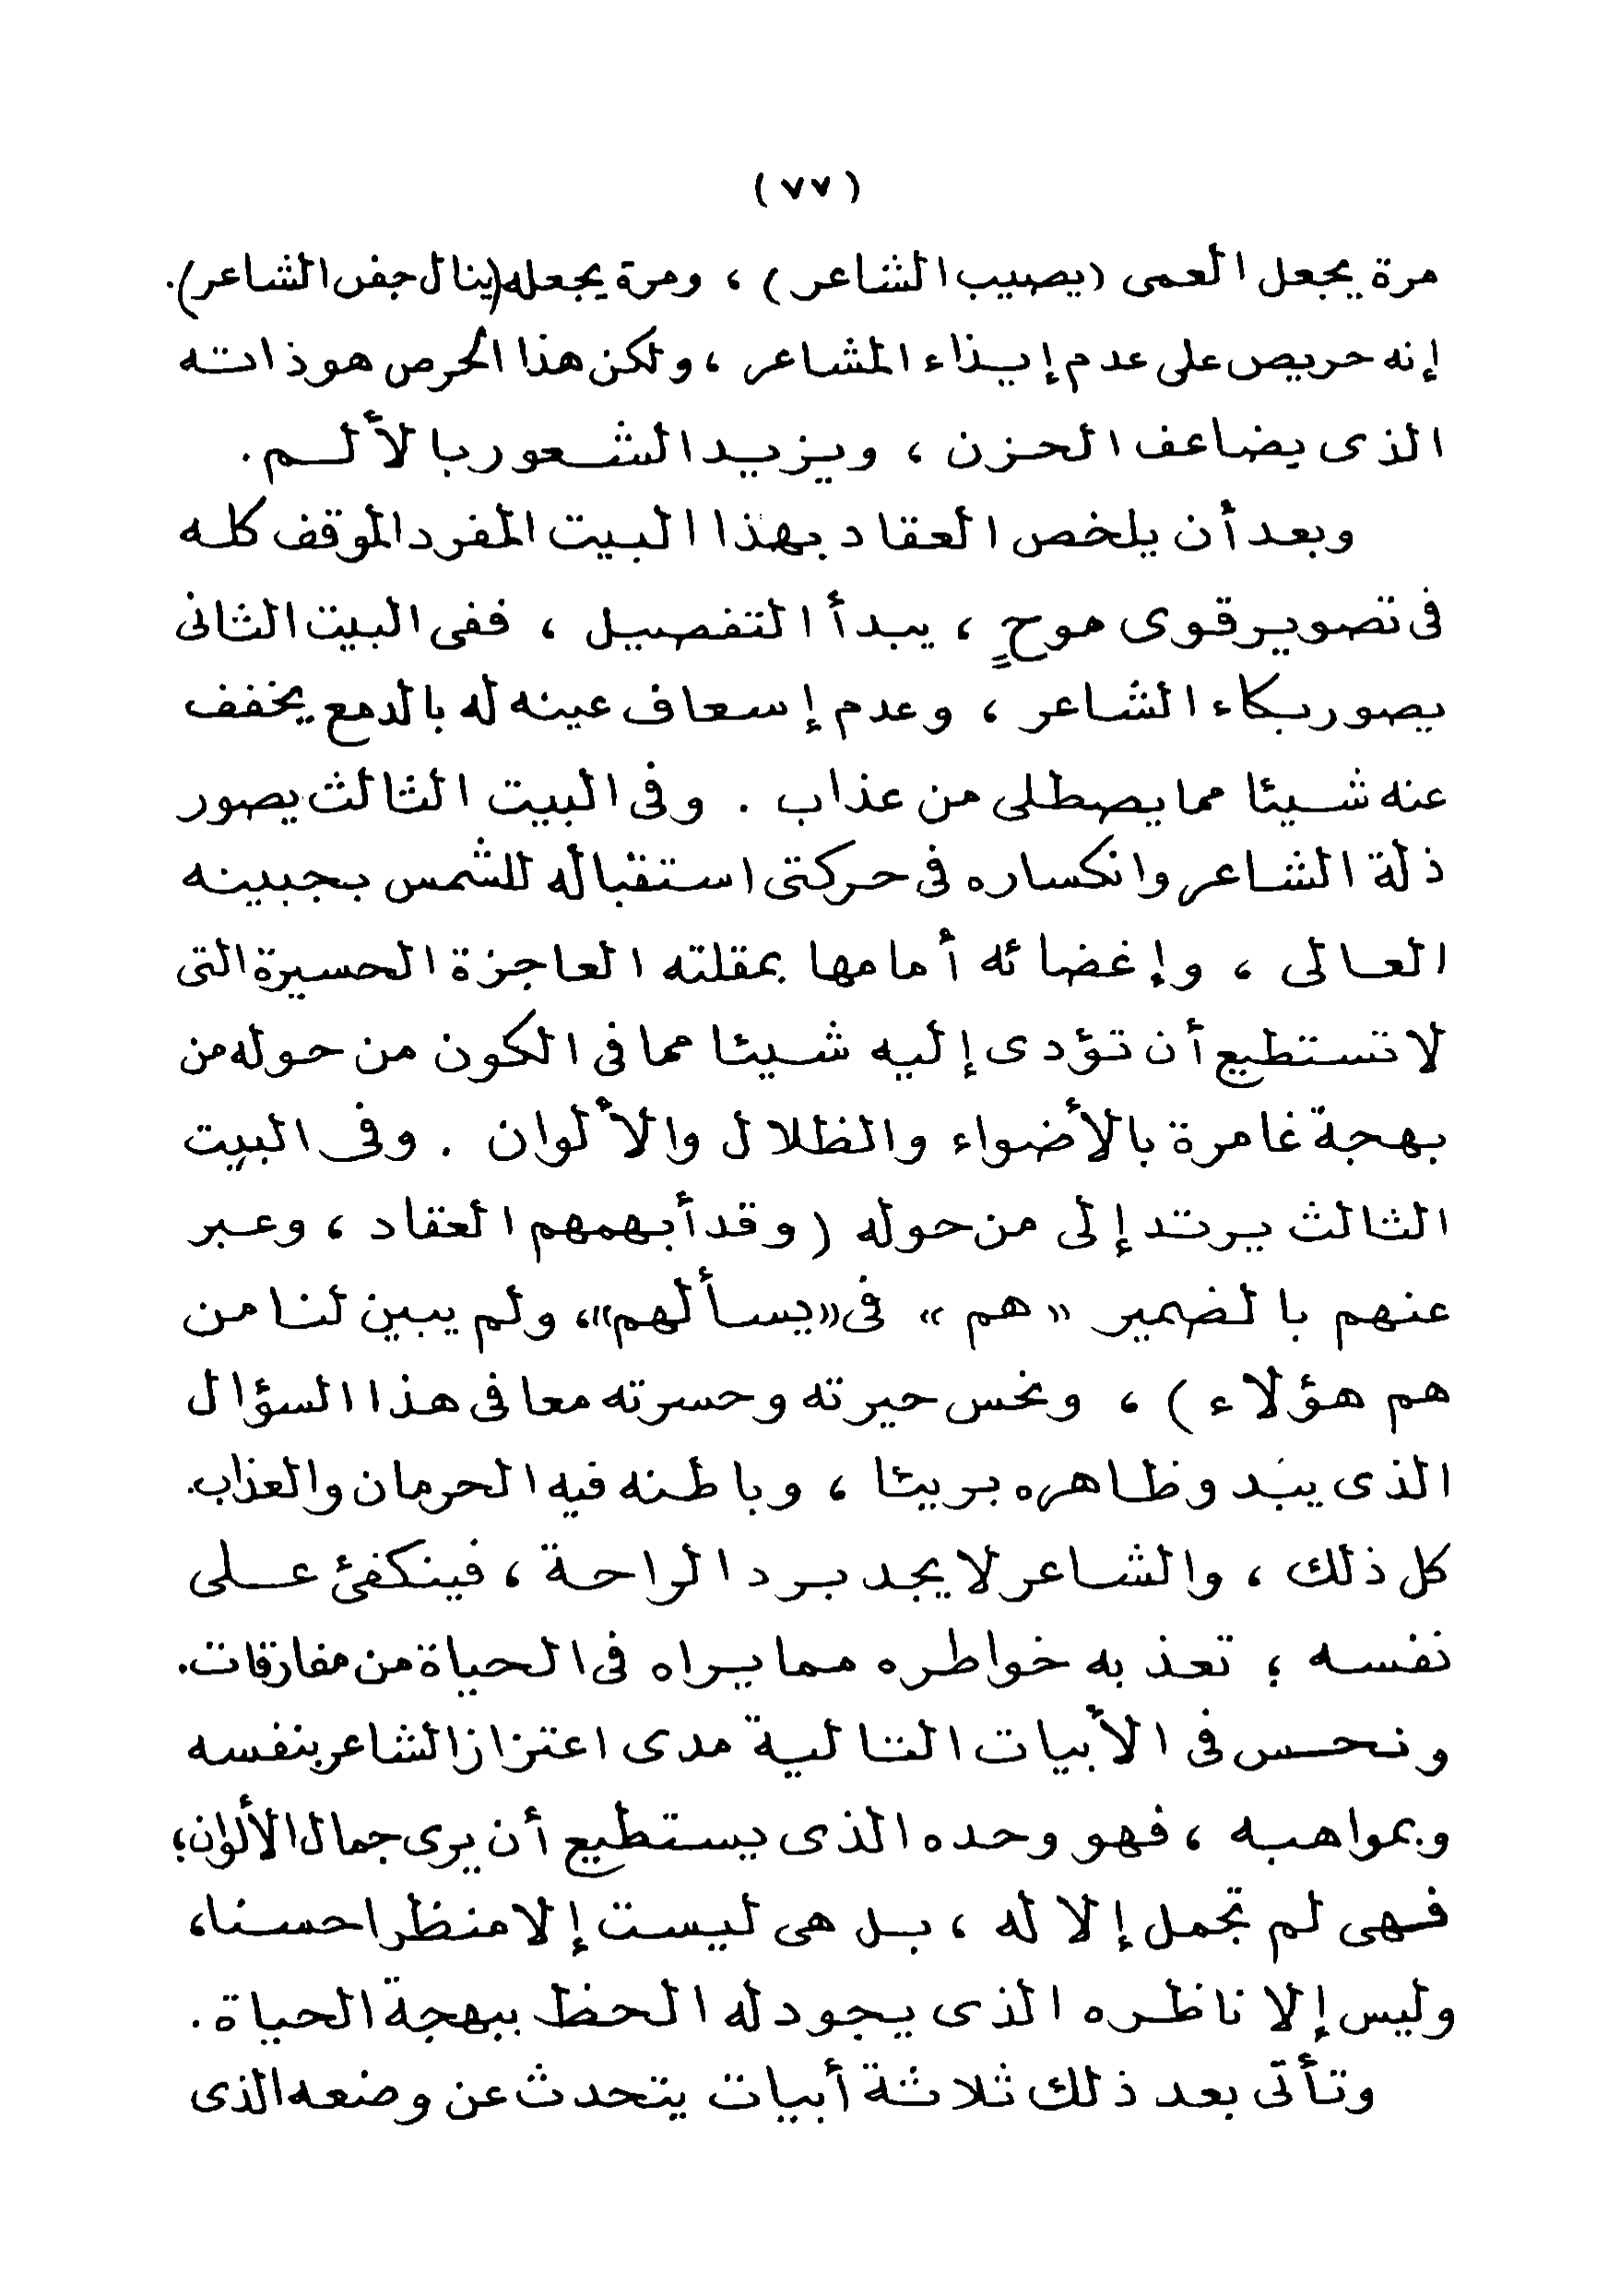 ( ٧٧ )
مرة يجعل العمى (يصيب الشاعر) ، ومرة يجعله (ينال جفن الشاعر).
إنه حريص على عدم إيذاء المشاعر ، ولكن هذا الحرص هو ذاته
الذى يضاعف الحزن ، ويزيد الشعور بالألم .
وبعد أن يلخص العقاد بهذا البيت المفرد الموقف كله
فى تصوير قوى موحٍ ، يبدأ التفصيل ، ففى البيت الثانى
يصور بكاء الشاعر ، وعدم إسعاف عينه له بالدمع يخفف
عنه شيئا مما يصطلى من عذاب . وفى البيت الثالث يصور
ذلة الشاعر وانكساره فى حركتى استقباله للشمس بجبينه
العالى ، وإغضائه أمامها بمقلته العاجزة الحسيرة التى
لا تستطيع أن تؤدى إليه شيئا مما فى الكون من حوله من
بهجة غامرة بالأضواء والظلال والألوان . وفى البيت
الثالث يرتد إلى من حوله ( وقد أبهمهم العقاد ، وعبر
عنهم بالضمير « هم » فى «يسألهم»، ولم يبين لنا من
هم هؤلاء ) ، ونحس حيرته وحسرته معا فى هذا السؤال
الذى يبدو ظاهره بريئا ، وباطنه فيه الحرمان والعذاب.
كل ذلك ، والشاعر لا يجد برد الراحة ، فينكفئ على
نفسه ؛ تعذبه خواطره مما يراه فى الحياة من مفارقات.
ونحس فى الأبيات التالية مدى اعتزاز الشاعر بنفسه
وبمواهبه ، فهو وحده الذى يستطيع أن يرى جمال الألوان؛
فهى لم تجمل إلا له ، بل هى ليست إلا منظرا حسنا،
وليس إلا ناظره الذى يجود له الحظ ببهجة الحياة .
وتأتى بعد ذلك ثلاثة أبيات يتحدث عن وضعه الذى